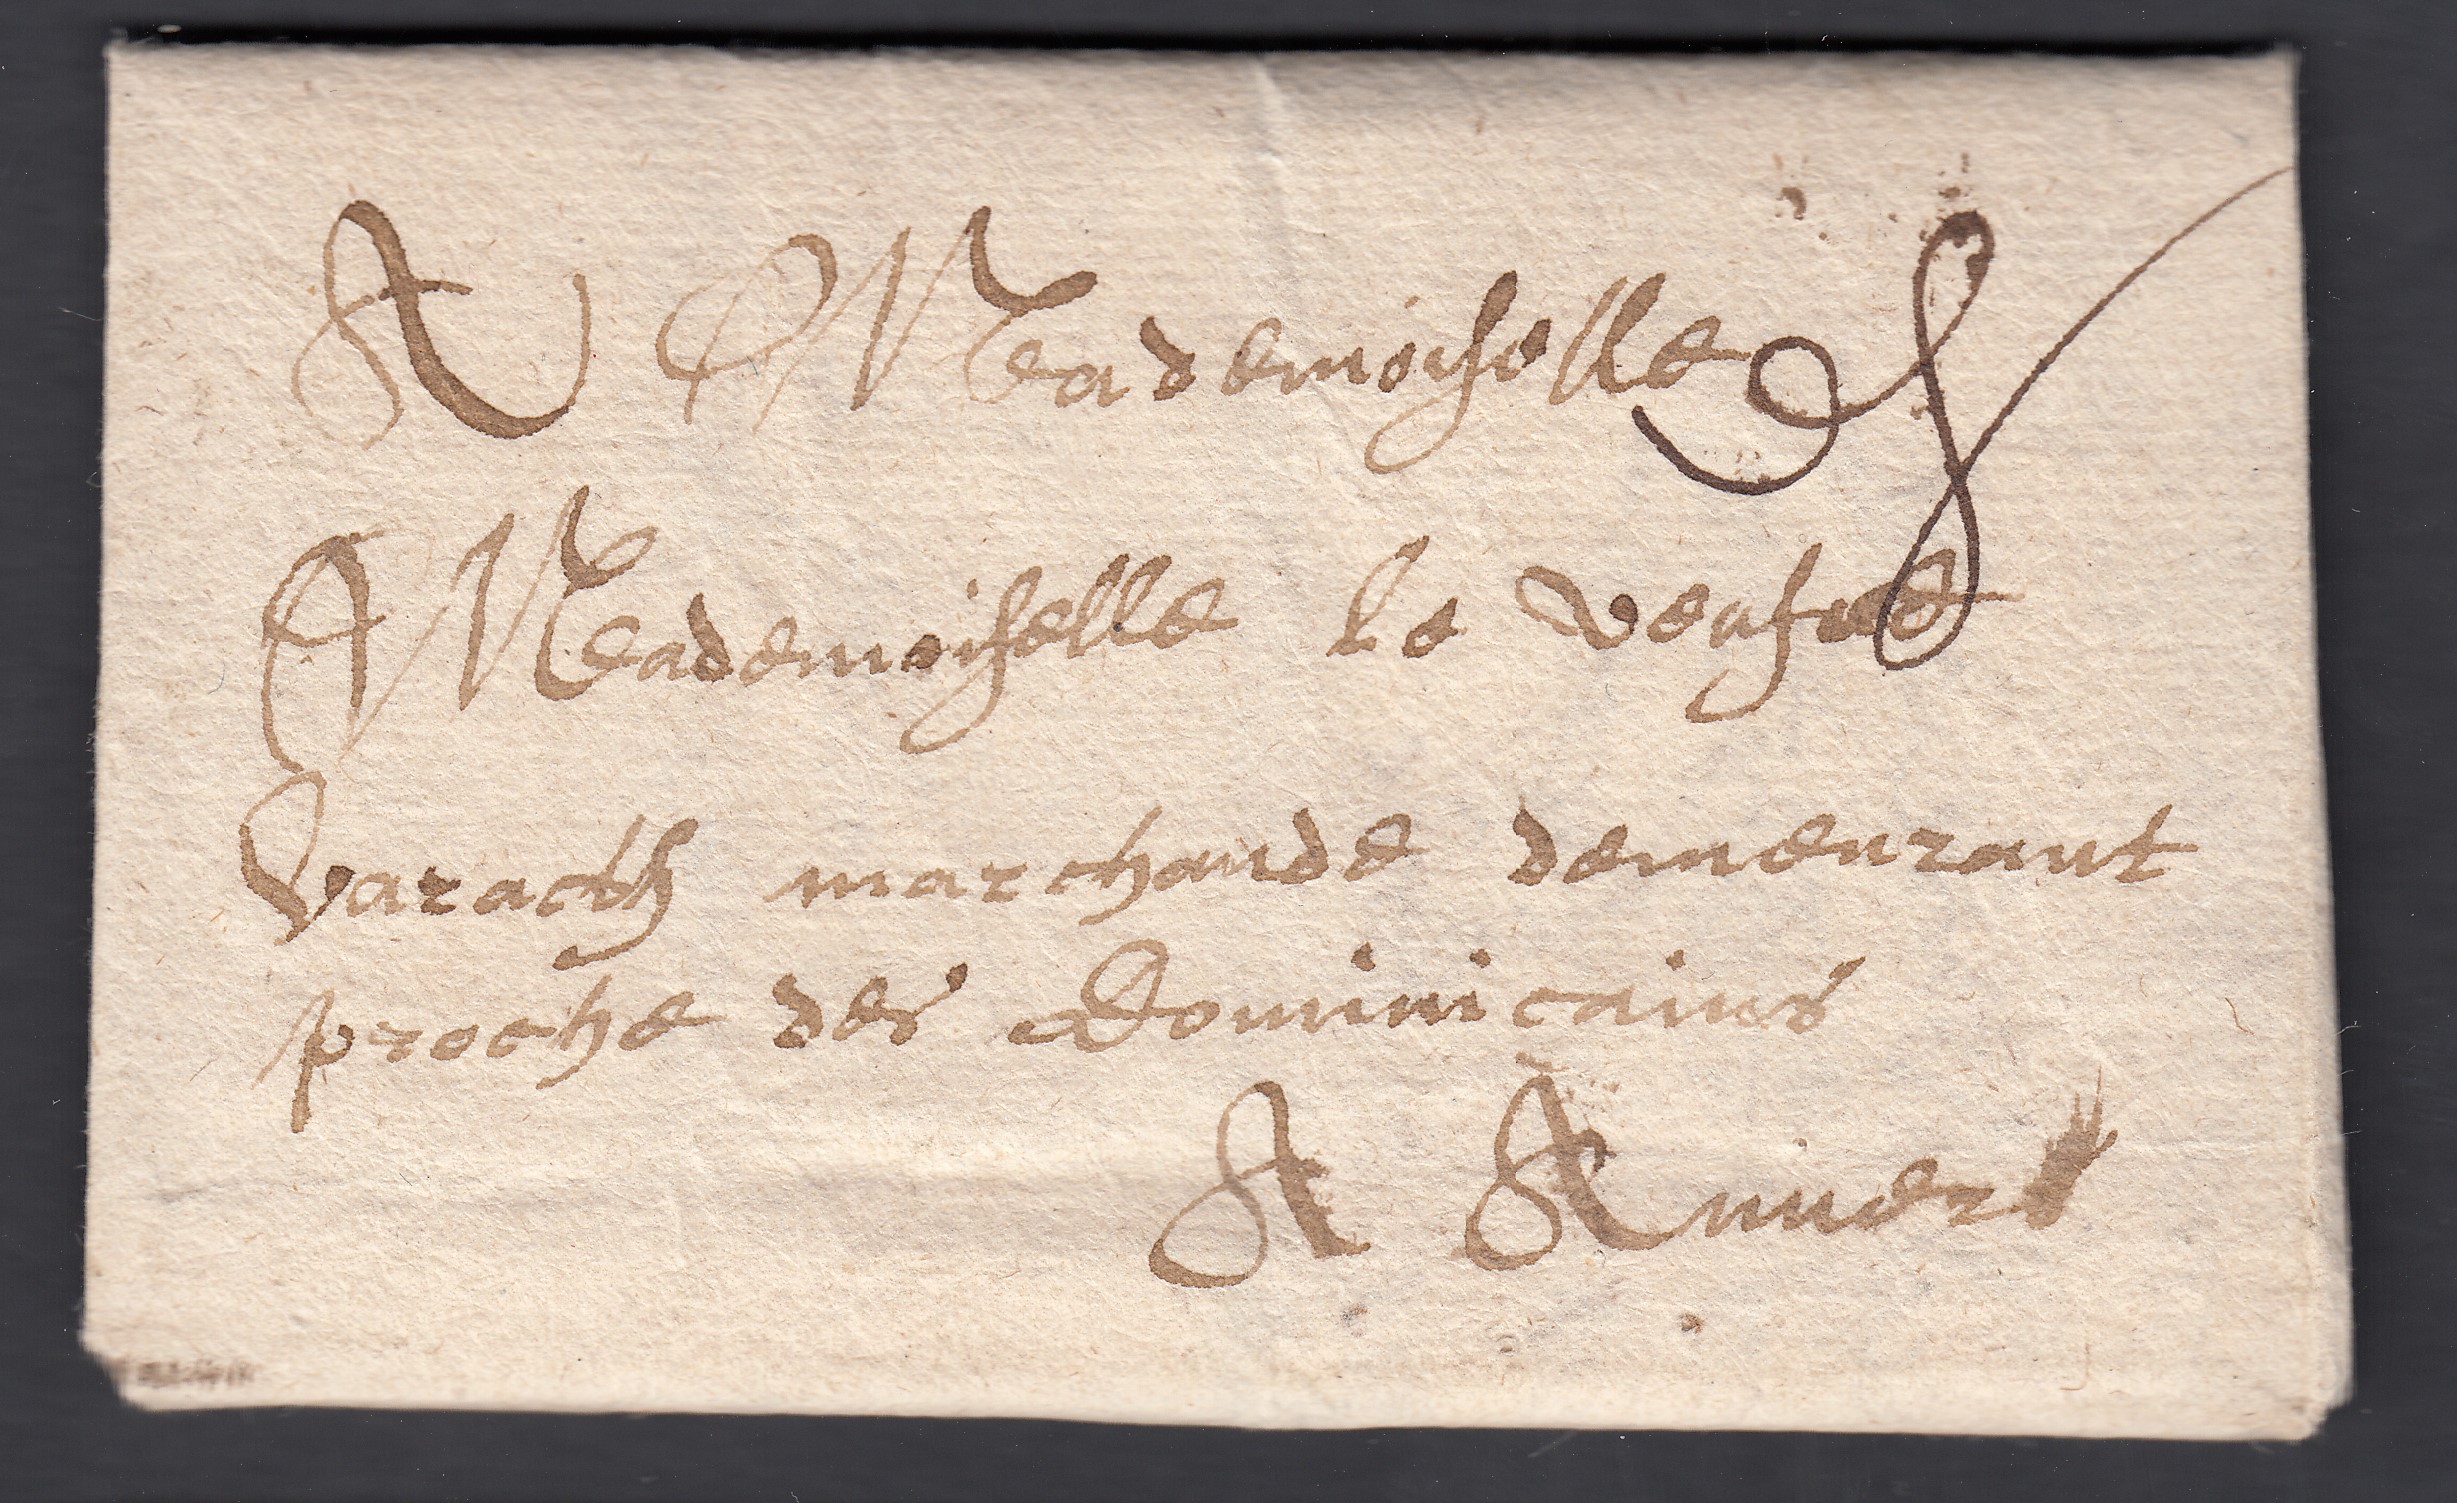 A Mademoiselle
Mademoiselle le veufue
varacth marchande demeurant
proche des Dominicains
A Anuers